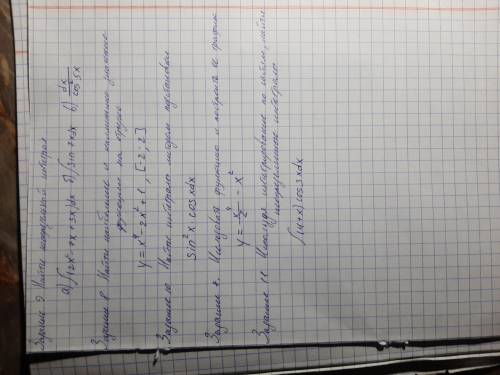 Задание 9 Найти неопределенный интеграл
а) ∫(2x²-7x+3x)dx б) ∫sin7xdx в) dx/cos²5x
Задание 8 Найти наибольшее и наименьшее значение
функции на отрезке
y=x⁴-2x²+1, [-2; 2]
Задание 10 Найти интеграл методом подстановки
sin²x cosxdx
Задание 7. Исследовать функцию и построить ее график
y= x⁴/2 - x²
Задание 11 Используя интегрирование по частям, найти
неопределенный интеграл
∫(4+x)cos3xdx